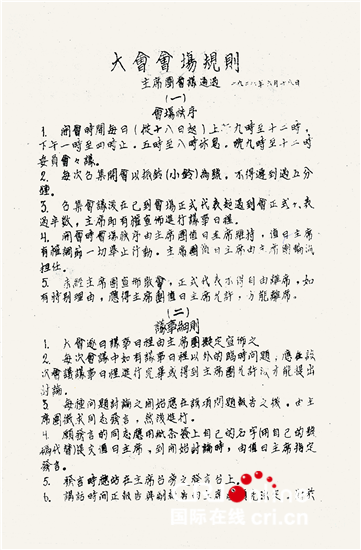 大會會場規則
主席團會議通過 一九二八年六月十八日
(一)
會場秩序
1. 開會時間每日(從十八日起)上午九時至十二時,
下午一時至四時止。五時至八時休息,晚九時至十二時
委員會會議。
2. 每次召集開會以搖鈴(小鈴)為號,不得遲到過五分
鐘。
3. 召集會議後在已到會場正式代表起過到會正式代表
過半數,主席即有權宣佈進行議事日程。
4. 開會時會場秩序由主席團值日主席維持,值日主席
有權 一切舉止行動。主席團值日主席由主席團輪流
担任。
5. 未經主席團宣佈散會,正式代表不得自由離席,如
有特別理由,應得主席團值日主席允許,方能離席。
(二)
議事細則
1. 大會逐日議事日程由主席團擬定宣佈之
2. 每次會議中如有議事日程以外的臨時問題,應在該
次會議議事日程進行完畢或得到主席團允許 才能提出
討論。
3. 每種問題討論之開始應在該項問題報告之後,由主
席團徵求同志發言,然後進行。
4. 願發言的同志應用紙條簽上自己的名字 自己的號
碼代替提交值日主席,到開始討論時,由值日主席指定
發言。
5. 發言時應站在主席台旁之發言台上。
6. 講話時間正報告與副報告
国际在线 cri.cn